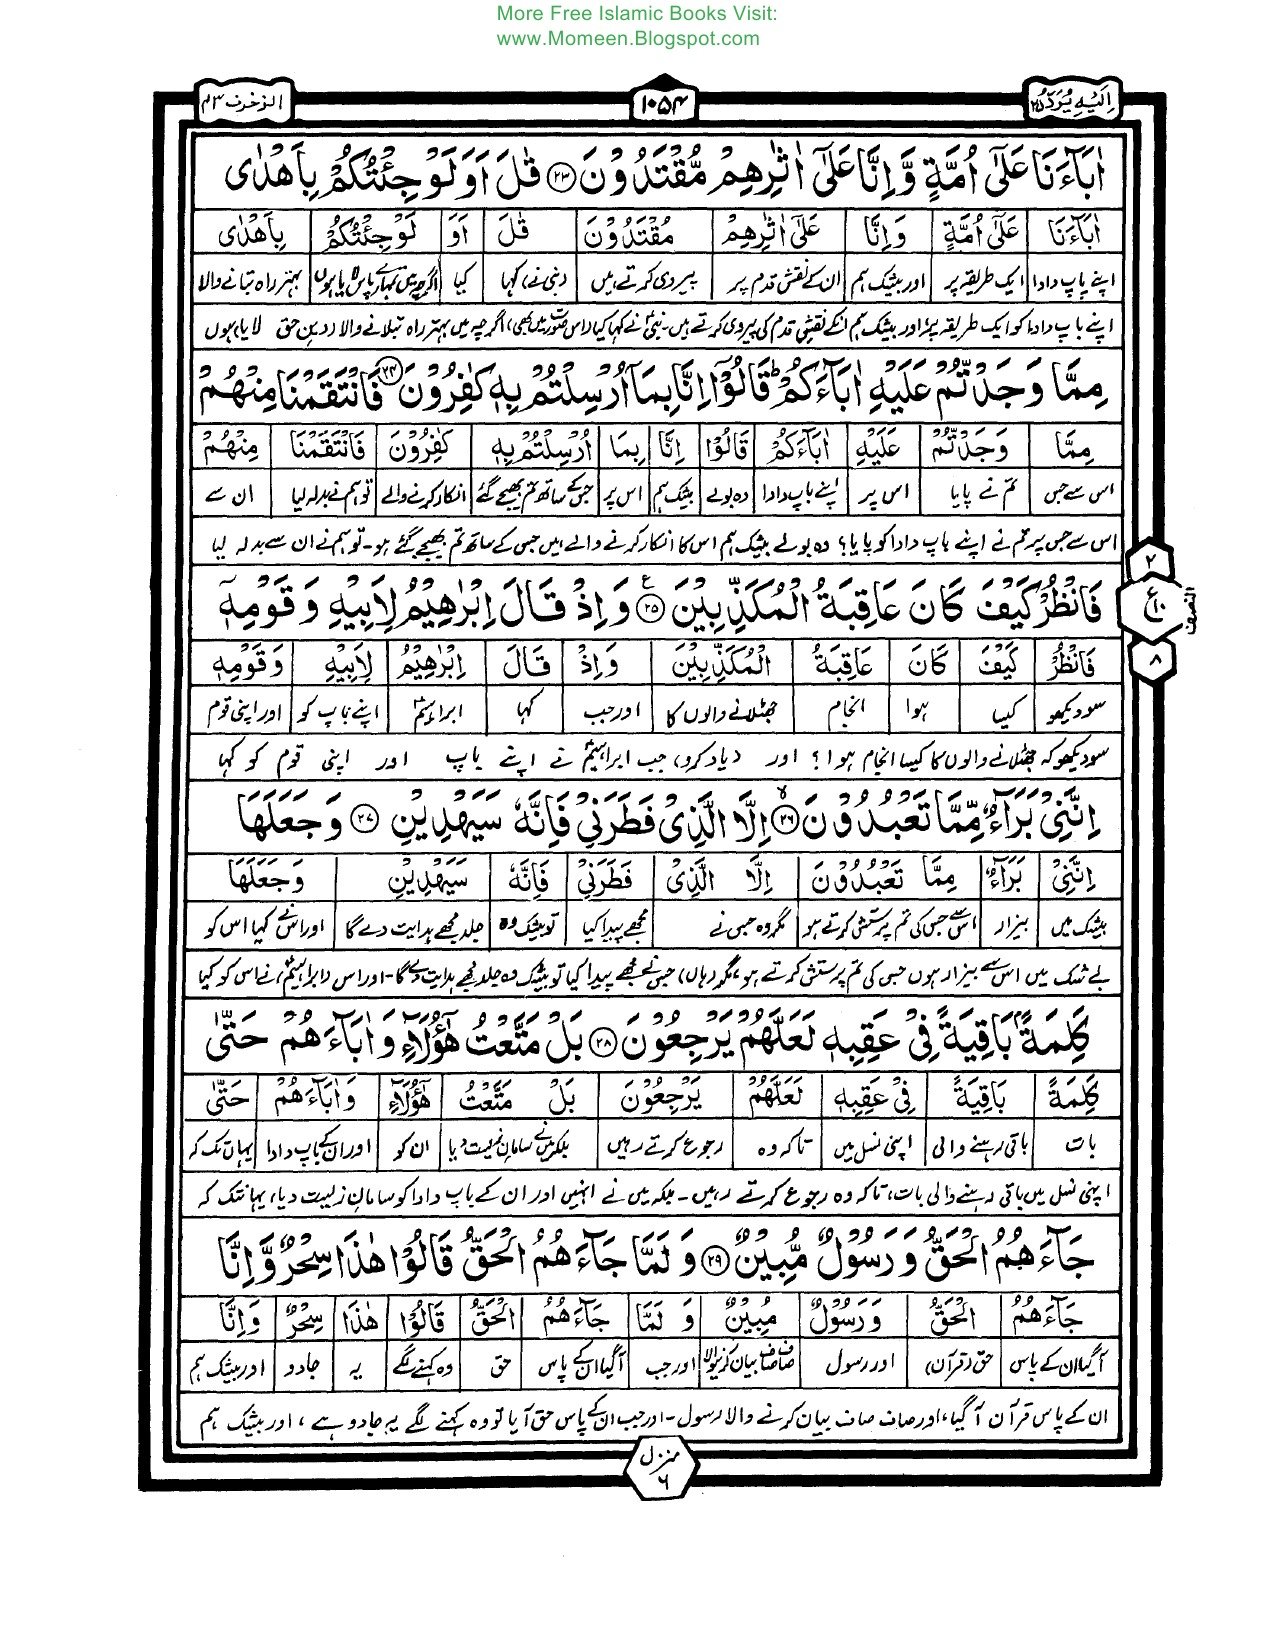 More Free Islamic Books Visit:
www.Momeen.Blogspot.com
اِلَیْهِ یُرَدُّ ۲۵
۱۰۵۴
الزخرف ۴۳
اٰبَآءَنَا عَلٰٓى اُمَّةٍ وَّاِنَّا عَلٰٓى اٰثٰرِهِمْ مُّقْتَدُوْنَ ۲۳ قٰلَ اَوَلَوْ جِئْتُكُمْ بِاَهْدٰى
اٰبَآءَنَا عَلٰٓى اُمَّةٍ وَاِنَّا عَلٰٓى اٰثٰرِهِمْ مُقْتَدُوْنَ قٰلَ اَوَ لَوْ جِئْتُكُمْ بِاَهْدٰى
اپنے باپ دادا ایک طریقہ پر اور بیشک ہم ان کے نقش قدم پر پیروی کرتے ہیں (نبی نے) کہا کیا اگرچہ میں تمہارے پاس لایا ہوں بہتر راہ بتانے والا
اپنے باپ دادا کو ایک طریقہ پر اور بیشک ہم انکے نقشِ قدم کی پیروی کرتے ہیں۔ نبیؐ نے کہا کیا (اس صورت میں بھی) اگرچہ میں بہتر راہ بتلانے والا (دین حق) لایا ہوں
مِمَّا وَجَدْتُّمْ عَلَيْهِ اٰبَآءَكُمْ ؕ قَالُوْٓا اِنَّا بِمَآ اُرْسِلْتُمْ بِهٖ كٰفِرُوْنَ ۲۴ فَانْتَقَمْنَا مِنْهُمْ
مِمَّا وَجَدْتُّمْ عَلَيْهِ اٰبَآءَكُمْ قَالُوْٓا اِنَّا بِمَا اُرْسِلْتُمْ بِهٖ كٰفِرُوْنَ فَانْتَقَمْنَا مِنْهُمْ
اس سے جس تم نے پایا اس پر اپنے باپ دادا وہ بولے بیشک ہم اس پر جس کے ساتھ تم بھیجے گئے انکار کرنے والے تو ہم نے بدلہ لیا ان سے
اس سے جس پر تم نے اپنے باپ دادا کو پایا؟ وہ بولے بیشک ہم اس کا انکار کرنے والے ہیں جس کے ساتھ تم بھیجے گئے ہو۔ تو ہم نے ان سے بدلہ لیا
فَانْظُرْ كَيْفَ كَانَ عَاقِبَةُ الْمُكَذِّبِيْنَ ۲۵ ع وَاِذْ قَالَ اِبْرٰهِيْمُ لِاَبِيْهِ وَقَوْمِهٖٓ
۲
ع ۱۰
۸
النصف
فَانْظُرْ كَيْفَ كَانَ عَاقِبَةُ الْمُكَذِّبِيْنَ وَاِذْ قَالَ اِبْرٰهِيْمُ لِاَبِيْهِ وَقَوْمِهٖ
سو دیکھو کیسا ہوا انجام جھٹلانے والوں کا اور جب کہا ابراہیمؑ اپنے باپ کو اور اپنی قوم
سو دیکھو کہ جھٹلانے والوں کا کیسا انجام ہوا؟ اور (یاد کرو) جب ابراہیمؑ نے اپنے باپ اور اپنی قوم کو کہا
اِنَّنِيْ بَرَآءٌ مِّمَّا تَعْبُدُوْنَ ۲۶ لا اِلَّا الَّذِيْ فَطَرَنِيْ فَاِنَّهٗ سَيَهْدِيْنِ ۲۷ وَجَعَلَهَا
اِنَّنِيْ بَرَآءٌ مِمَّا تَعْبُدُوْنَ اِلَّا الَّذِيْ فَطَرَنِيْ فَاِنَّهٗ سَيَهْدِيْنِ وَجَعَلَهَا
بیشک میں بیزار اس سے جس کی تم پرستش کرتے ہو مگر وہ جس نے مجھے پیدا کیا تو بیشک وہ جلد مجھے ہدایت دے گا اور اس نے کیا اس کو
بے شک میں اس سے بیزار ہوں جس کی تم پرستش کرتے ہو، مگر (ہاں) جس نے مجھے پیدا کیا تو بیشک وہ جلد مجھے ہدایت دے گا۔ اور اس (ابراہیمؑ) نے اس کو کیا
كَلِمَةًۢ بَاقِيَةً فِيْ عَقِبِهٖ لَعَلَّهُمْ يَرْجِعُوْنَ ۲۸ بَلْ مَتَّعْتُ هٰٓؤُلَآءِ وَاٰبَآءَهُمْ حَتّٰى
كَلِمَةً بَاقِيَةً فِيْ عَقِبِهٖ لَعَلَّهُمْ يَرْجِعُوْنَ بَلْ مَتَّعْتُ هٰٓؤُلَآءِ وَاٰبَآءَهُمْ حَتّٰى
بات باقی رہنے والی اپنی نسل میں تاکہ وہ رجوع کرتے رہیں بلکہ میں نے سامان زیست دیا ان کو اور ان کے باپ دادا یہاں تک کہ
اپنی نسل میں باقی رہنے والی بات، تاکہ وہ رجوع کرتے رہیں۔ بلکہ میں نے انہیں اور ان کے باپ دادا کو سامانِ زیست دیا، یہانتک کہ
جَآءَهُمُ الْحَقُّ وَرَسُوْلٌ مُّبِيْنٌ ۲۹ وَلَمَّا جَآءَهُمُ الْحَقُّ قَالُوْا هٰذَا سِحْرٌ وَّاِنَّا
جَآءَهُمُ الْحَقُّ وَرَسُوْلٌ مُبِيْنٌ وَلَمَّا جَآءَهُمُ الْحَقُّ قَالُوْا هٰذَا سِحْرٌ وَاِنَّا
آگیا ان کے پاس حق (قرآن) اور رسول صاف صاف بیان کرنیوالا اور جب آگیا ان کے پاس حق وہ کہنے لگے یہ جادو اور بیشک ہم
ان کے پاس قرآن آگیا، اور صاف صاف بیان کرنے والا رسول۔ اور جب ان کے پاس حق آیا تو وہ کہنے لگے یہ جادو ہے، اور بیشک ہم
منزل ۶